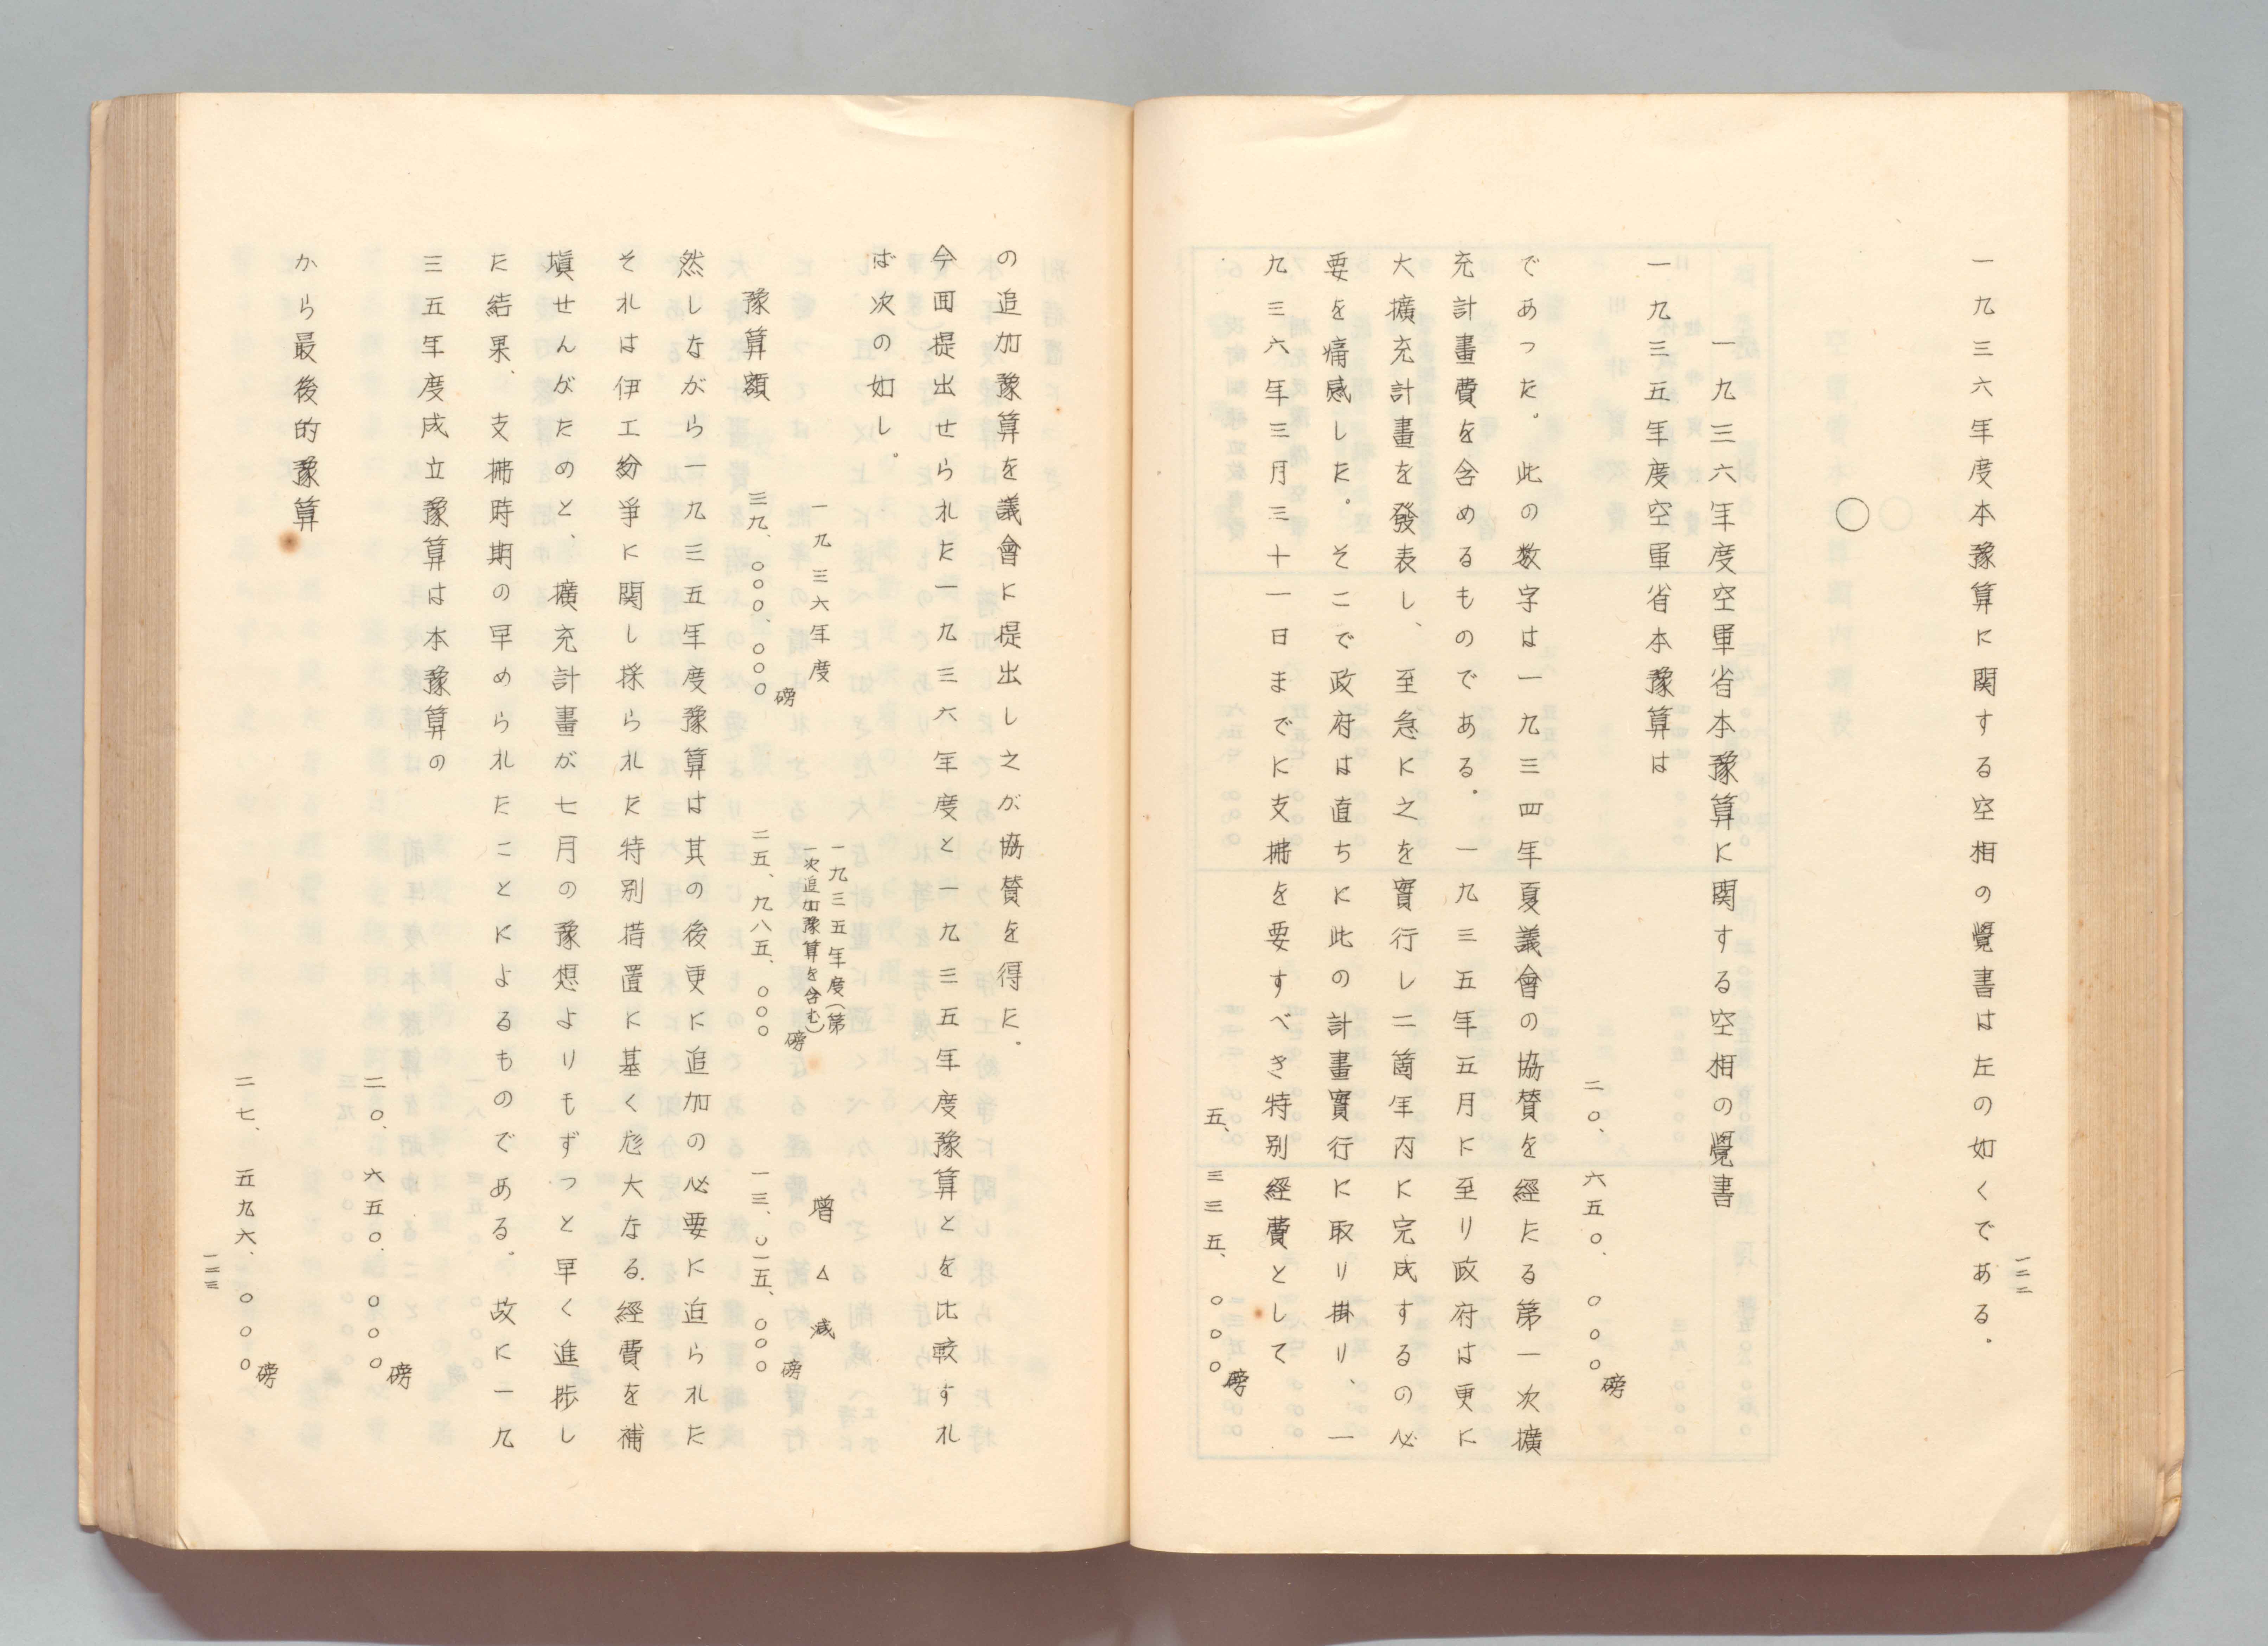 一二二
一九三六年度本豫算に関する空相の覺書は左の如くである.
○
一九三六年度空軍省本豫算に関する空相の覺書
一九三五年度空軍省本豫算は
二〇、六五〇、〇〇〇磅
であった。此の数字は一九三四年夏議會の協賛を經たる第一次擴
充計畫費を含めるものである.一九三五年五月に至り政府は更に
大擴充計畫を發表し、至急に之を實行し二箇年内に完成するの必
要を痛感した。そこで政府は直ちに此の計畫實行に取り掛り、一
九三六年三月三十一日までに支拂を要すべき特別經費として
五、三三五、〇〇〇磅
の追加豫算を議會に提出し之が協賛を得た.
今囬提出せられた一九三六年度と一九三五年度豫算とを比較すれ
ば次の如し。
一九三六年度
一九三五年度(第
一次追加豫算を含む)
增 △ 减
豫算額 三九、〇〇〇、〇〇〇磅 二五、九八五、〇〇〇磅 一三、〇一五、〇〇〇磅
然しながら一九三五年度豫算は其の後更に追加の必要に迫られた
それは伊工紛爭に関し採られた特別措置に基く尨大なる經費を補
塡せんがためと、擴充計畫が七月の豫想よりもずっと早く進捗し
た結果、支拂時期の早められたことによるものである。故に一九
三五年度成立豫算は本豫算の
二〇、六五〇、〇〇〇磅
から最後的豫算
二七、五九六、〇〇〇磅
一二三